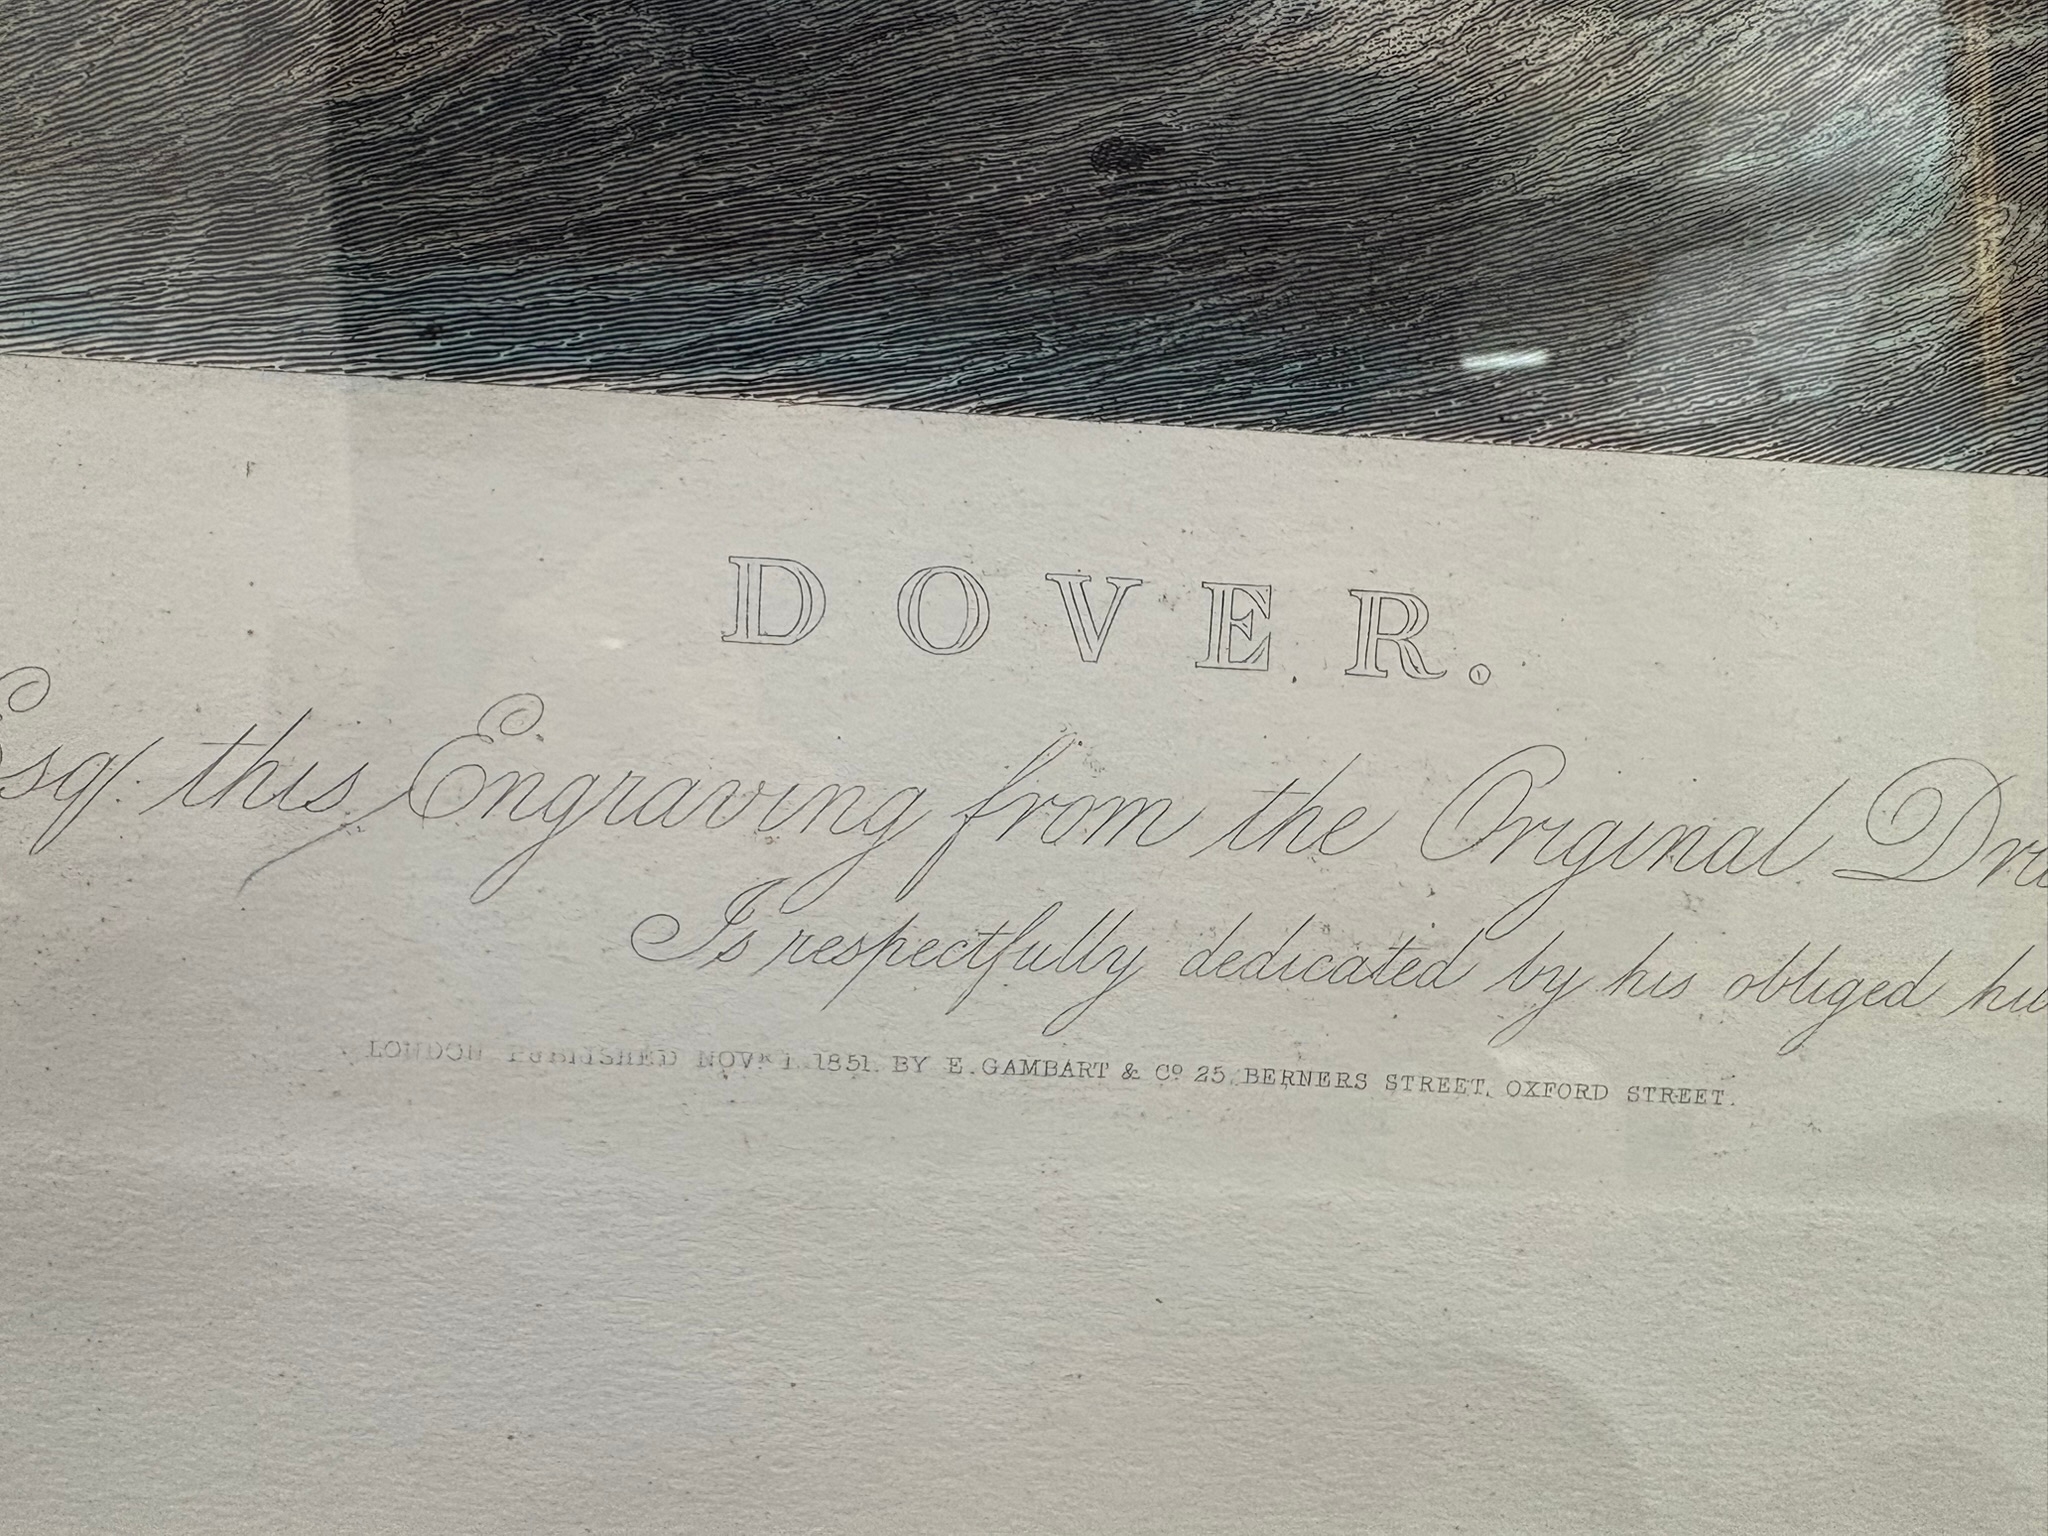 DOVER.
Esqr. this Engraving from the Original
Is respectfully dedicated by his obliged
LONDON PUBLISHED NOVR. 1. 1851. BY E. GAMBART & Co. 25, BERNERS STREET, OXFORD STREET.